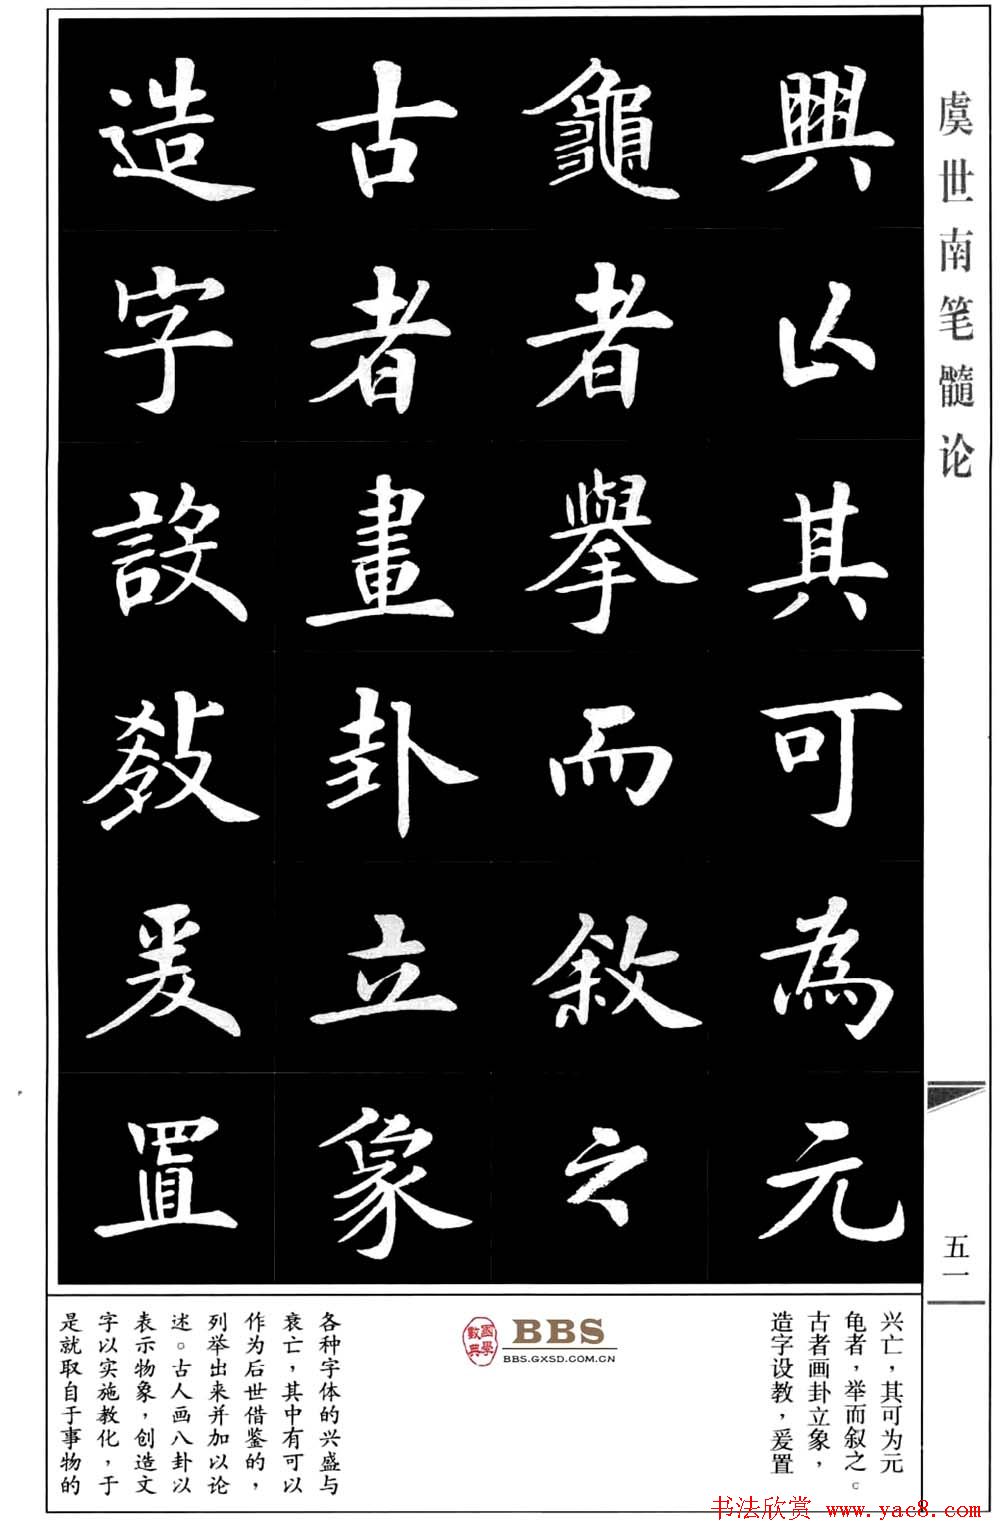 虞世南笔髓论
興亡其可為元
龜者舉而敘之
古者畫卦立象
造字設教爰置
五一
兴亡，其可为元
龟者，举而叙之。
古者画卦立象，
造字设教，爰置
國學數典
BBS
BBS.GXSD.COM.CN
各种字体的兴盛与
衰亡，其中有可以
作为后世借鉴的，
列举出来并加以论
述。古人画八卦以
表示物象，创造文
字以实施教化，于
是就取自于事物的
书法欣赏 www.yac8.com